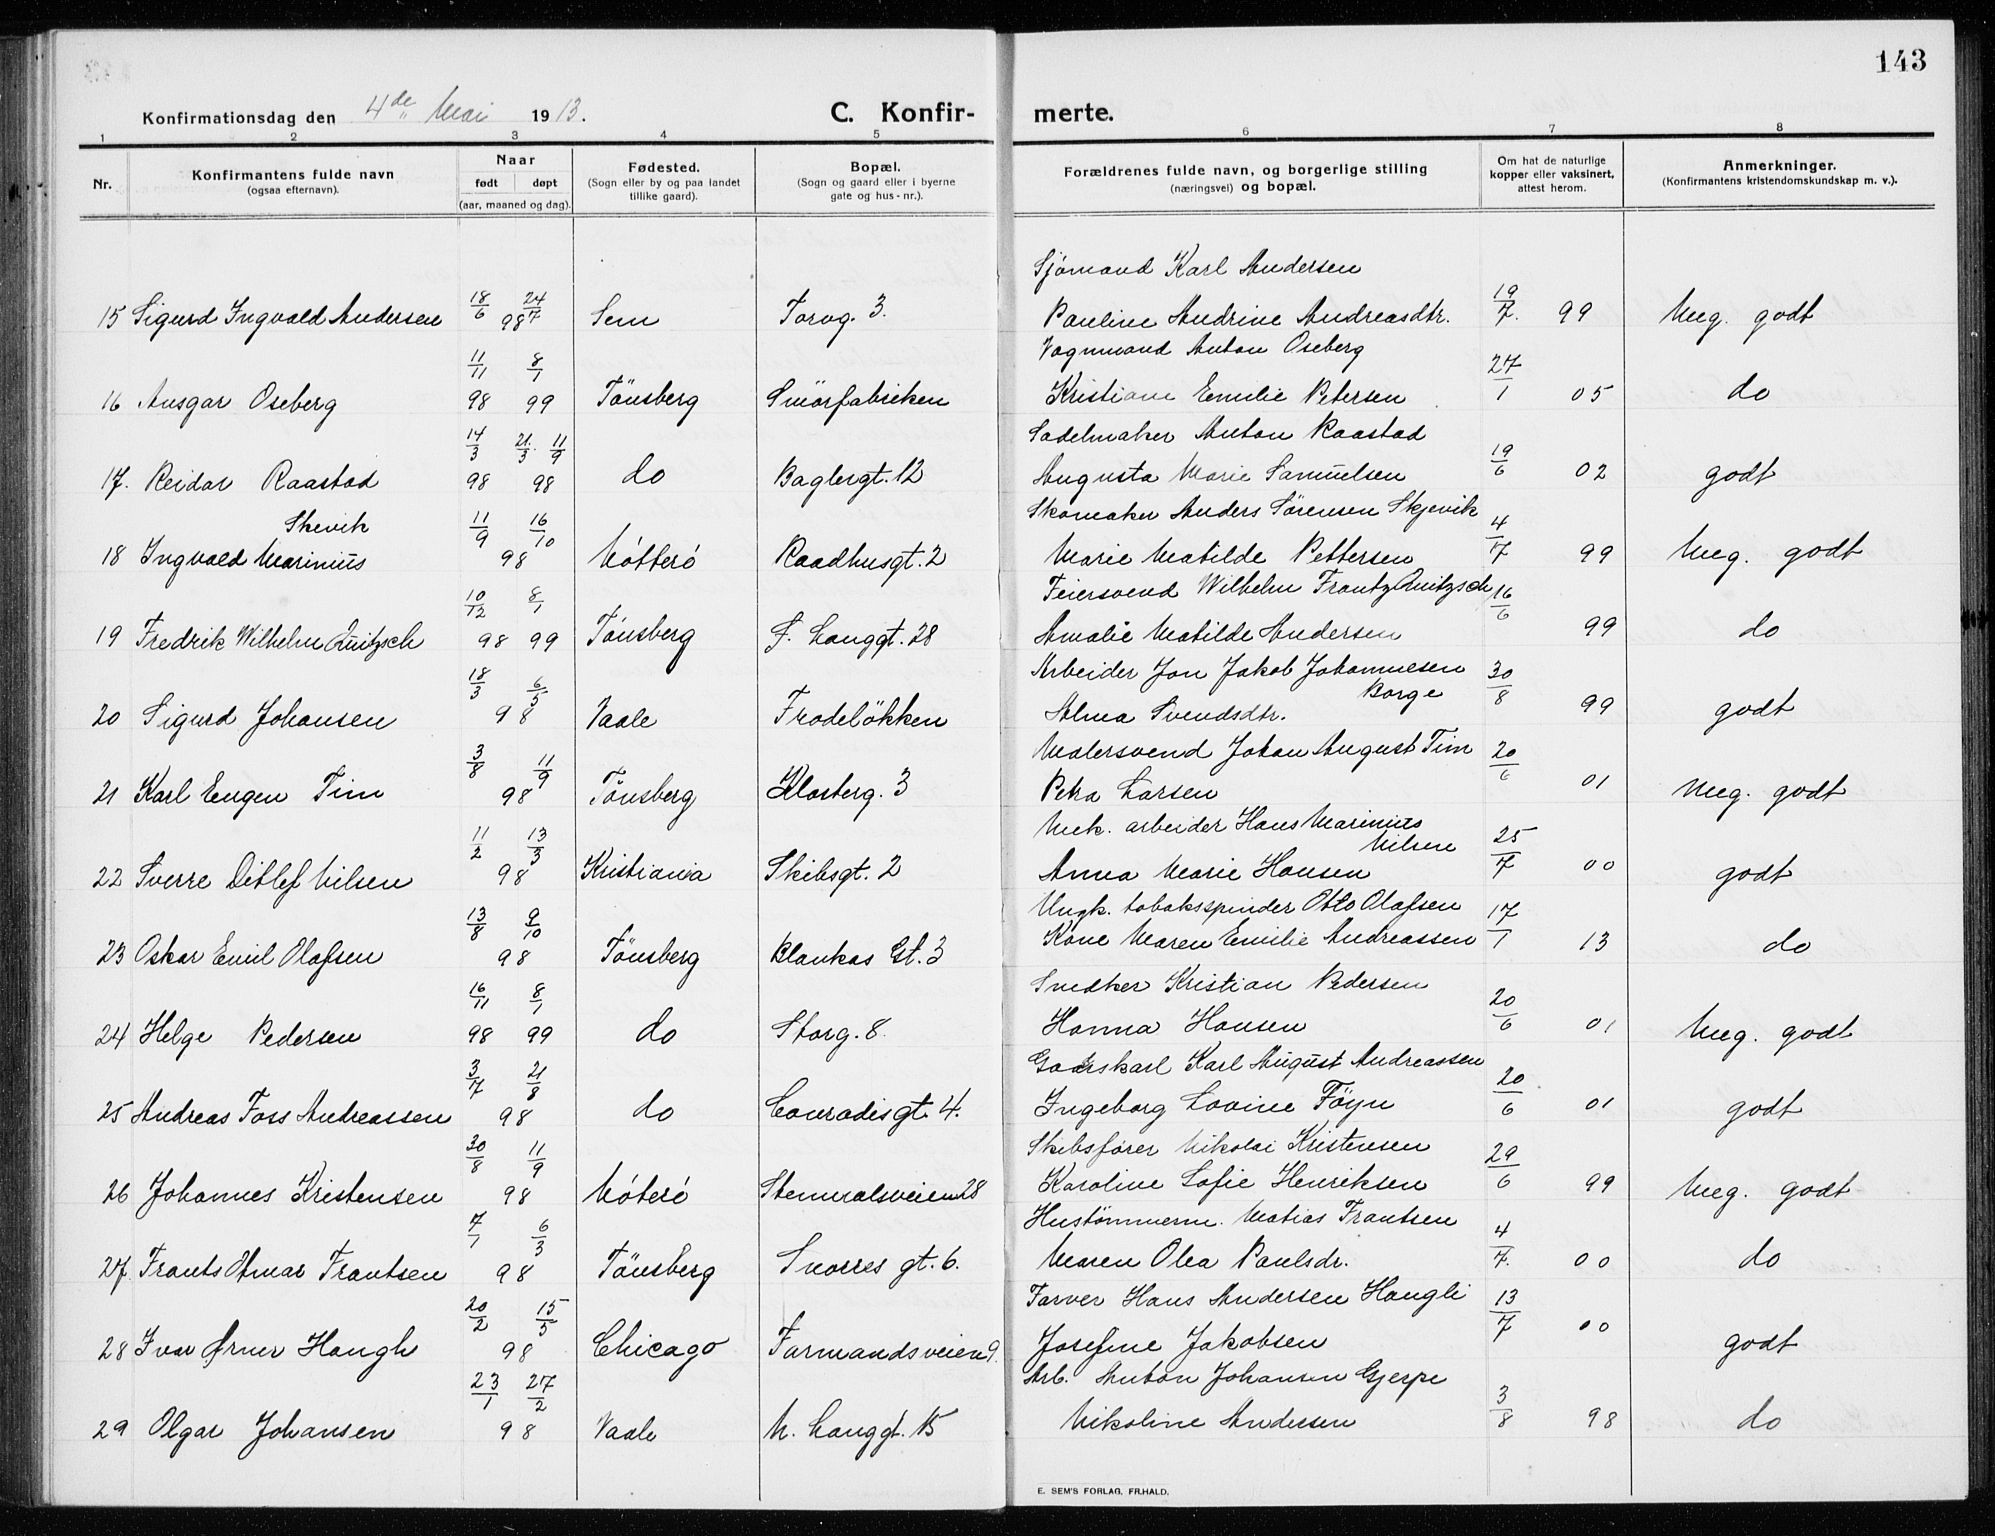 143
Konfirmationsdag den 4de Mai 1913. C. Konfirmerte.
1 2 3 4 5 6 7 8
Nr. Konfirmantens fulde navn (ogsaa efternavn). Naar født døpt (aar, maaned og dag). Fødested. (Sogn eller by og paa landet tillike gaard). Bopæl. (Sogn og gaard eller i byerne gate og hus-nr.). Forældrenes fulde navn, og borgerlige stilling (næringsvei) og bopæl. Om hat de naturlige kopper eller vaksinert, attest herom. Anmerkninger. (Konfirmantens kristendomskundskap m. v.).
Sjømand Karl Andersen
15 Sigurd Ingvald Andersen 18/6 24/7 98 Sem Torvg. 3. Pauline Andrine Andreasdtr. 19/7. 99 Meg. godt
Vognmand Anton Oseberg
16 Ansgar Oseberg 11/11 98 8/1 99 Tönsberg Smörfabriken Kristiane Emilie Petersen 27/1 05 do
Sadelmaker Anton Raastad
17. Reidar Raastad 14/3 98 21/3. 11/9 98 do Baglergt. 12 Augusta Marie Samuelsen 19/6 02 godt
Skevik Skomaker Anders Sörensen Skjevik
18 Ingvald Marinius 11/9 16/10 98 Nötterö Raadhusgt. 2 Marie Matilde Pettersen 4/7 99 Meg. godt
Feiersvend Wilhelm Frantz Quitzsch
19 Fredrik Wilhelm Quitzsch 10/12 98 8/1 99 Tönsberg S. Langgt. 28 Amalie Matilde Andersen 16/6 99 do
Arbeider Jon Jakob Johannesen
Borge
20 Sigurd Johansen 18/3 6/5 98 Vaale Frodelökken Alma Svendsdtr. 30/8 99 godt
Malersvend Johan August Tim
21 Karl Eugen Tim 3/8 11/9 98 Tönsberg Klosterg. 3 Petra Larsen 20/6 01 Meg. godt
Mek. arbeider Hans Marinius
Nilsen
22 Sverre Ditlef Nilsen 11/2 13/3 98 Kristiania Skibsgt. 2 Anna Marie Hansen 25/7 00 godt
Ungk. tobaksspinder Otto Olafsen
23 Oskar Emil Olafsen 13/8 9/10 98 Tönsberg Blankas Gt. 3 Kone Maren Emilie Andreassen 17/1 13 do
Snedker Kristian Pedersen
24 Helge Pedersen 16/11 98 8/1 99 do Storg. 8. Hanna Hansen 20/6 01 Meg. godt
Gaardskarl Karl August Andreassen
25 Andreas Foss Andreassen 3/7 21/8 98 do Conradisgt. 4. Ingeborg Lovine Föyn 20/6 01 godt
Skibsfører Nikolai Kristensen
26 Johannes Kristensen 30/8 11/9 98 Nöterö Stenmalsveien 28 Karoline Sofie Henriksen 29/6 99 Meg. godt
Hustömmerm. Matias Frantsen
27. Frants Otmar Frantsen 7/1 6/3 98 Tönsberg Snorres gt. 6. Maren Olea Paulsdr. 4/7. 00 do
Farver Hans Andersen Haugli
28 Ivar Ørner Haugli 20/2 15/5 98 Chicago Farmandsveien 9. Josefine Jakobsen 13/7 00 godt
Arb. Anton Johansen Gjerpe
29 Olgar Johansen 23/1 27/2 98 Vaale N. Langgt. 15 Nikoline Andersen 3/8 98 do
E. SEM'S FORLAG, FR.HALD.